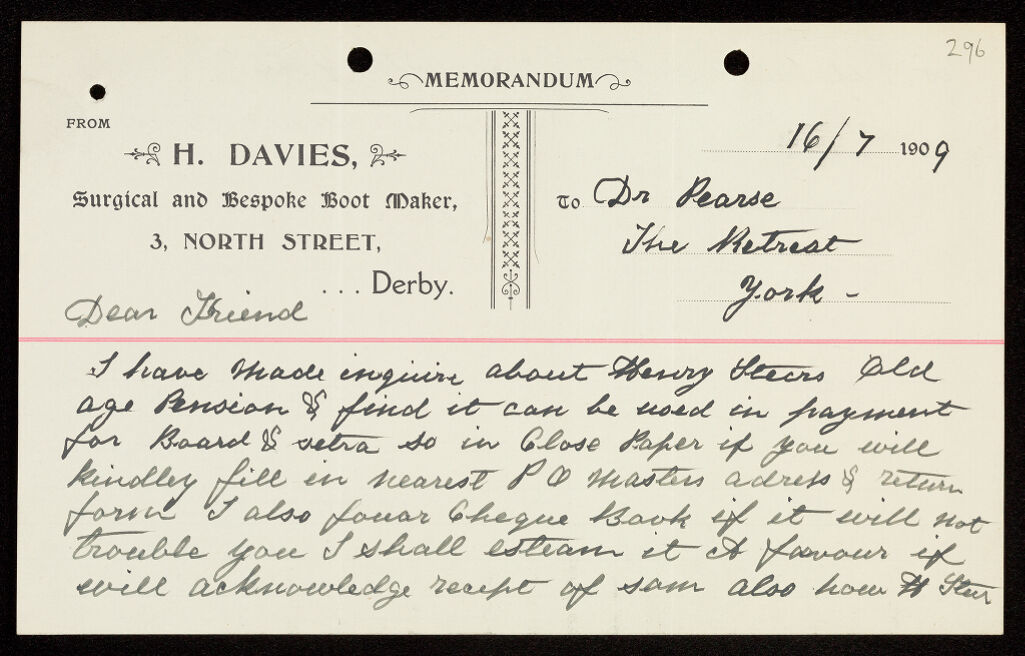 296
MEMORANDUM
FROM
H. DAVIES,
Surgical and Bespoke Boot Maker,
3, NORTH STREET,
... Derby.
16/7 1909
To Dr Pearse
The Retreat
York -
Dear Friend
I have made inquire about Henry Steers Old
age Pension & find it can be used in payment
for Board & setra so in Close Paper if you will
kindley fill in nearest P O Masters adress & return
form I also Cheque Book if it will not
trouble you I shall esteam it A favour if
will acknowledge receipt of sam also how H Steer